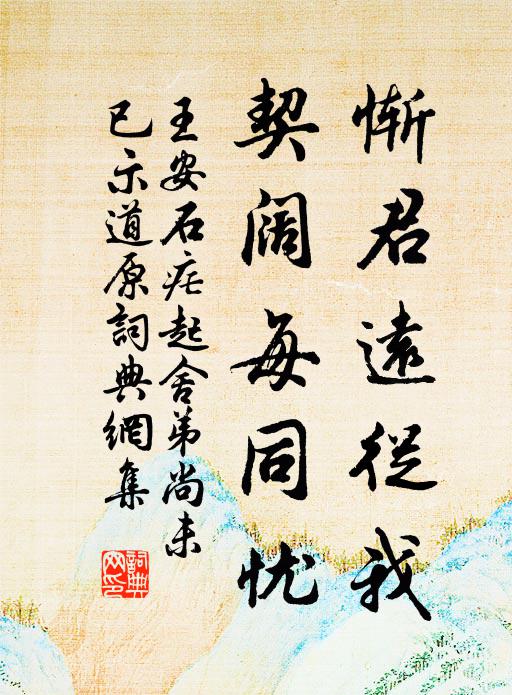 惭君遠從我
契阔每同忧
王安石疟起舍弟尚未
已示道原詞典網集
詞典網印